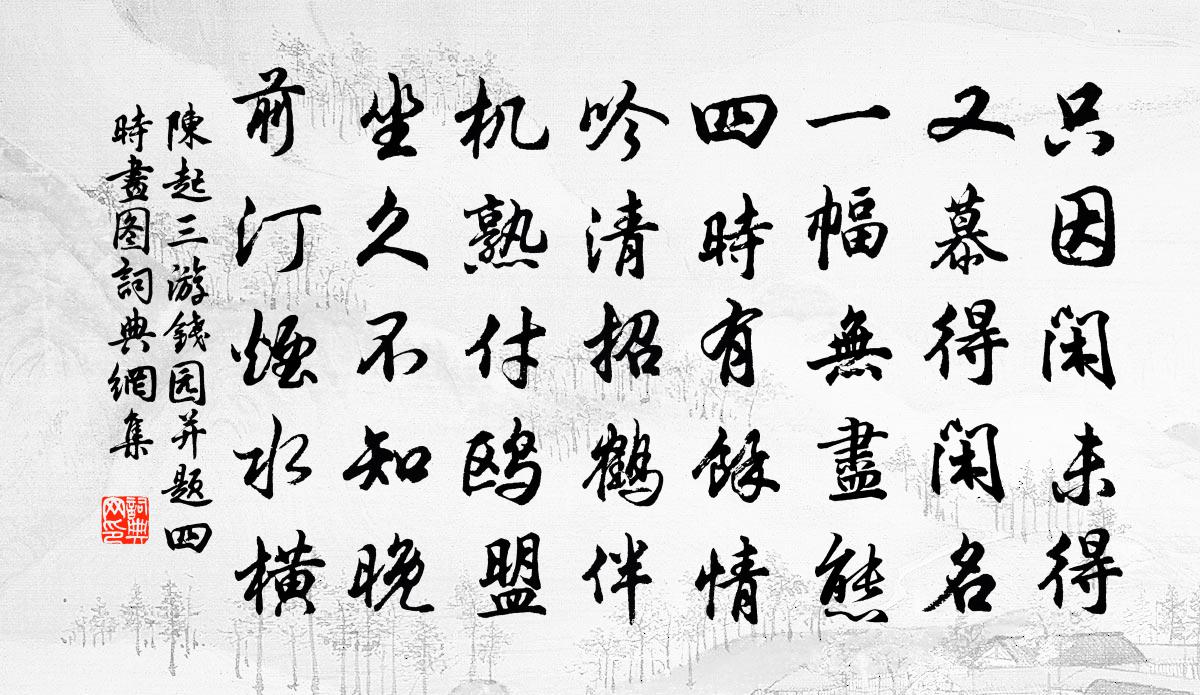 只因闲未得
又慕得闲名
一幅無盡態
四時有餘情
吟清招鶴伴
机熟付鸥盟
坐久不知晚
前汀煙水橫
陳起三游錢园并题四
時畫图詞典網集
詞典網印